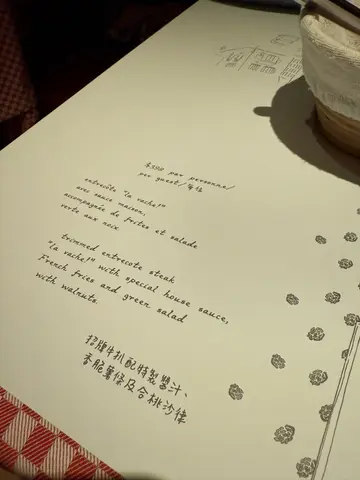 per guest/每位
entrecôte "la vache!"
avec sauce maison,
accompagnée de frites et salade
verte aux noix
trimmed entrecote steak
"la vache!" with special house sauce,
French fries and green salad
with walnuts.
招牌牛扒配特製醬汁、
香脆薯條及合桃沙律